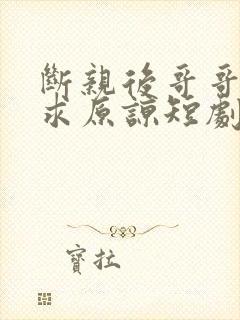 斷親後哥哥
求原諒短劇
寶拉